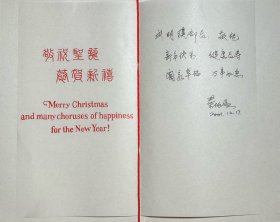 敬祝聖誕
恭賀新禧
Merry Christmas
and many choruses of happiness
for the New Year!
敬祝
新年快乐 健康长寿
阖家幸福 万事如意
2001.12.17